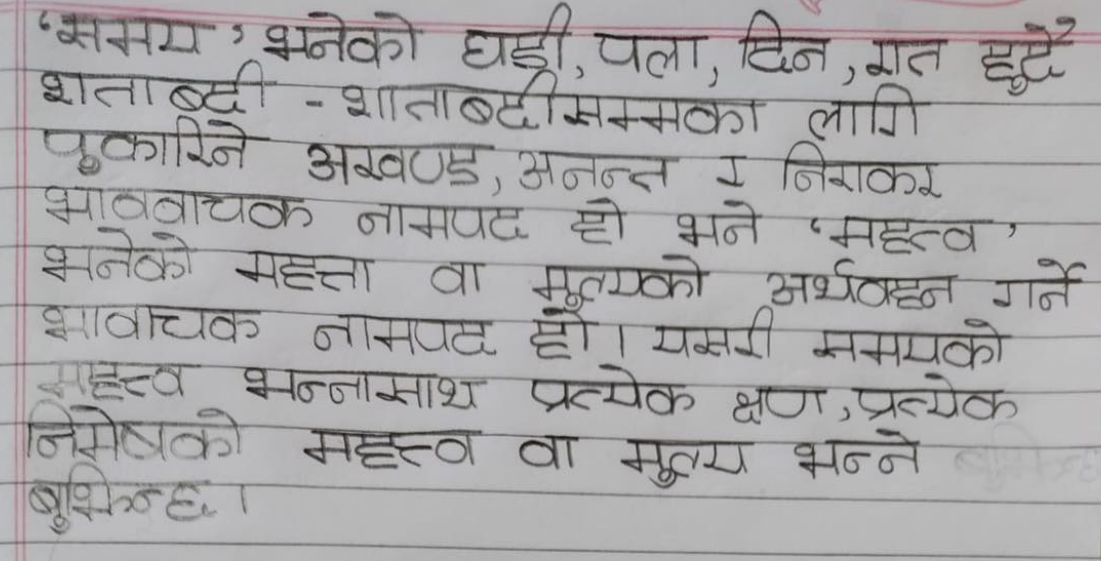 'समय' भनेको घडी, पला, दिन, रात हुदै
शताब्दी - शाताब्दीसम्मका लागि
पुकारिने अखण्ड, अनन्त र निराकर
भाववाचक नामपद हो भने 'महत्व'
भनेको महत्ता वा मूल्यको अर्थवहन गर्ने
भावाचक नामपद हो। यसरी समयको
महत्त्व भन्नासाथ प्रत्येक क्षण, प्रत्येक
निमेषको महत्त्व वा मूल्य भन्ने
बुझिन्छ।